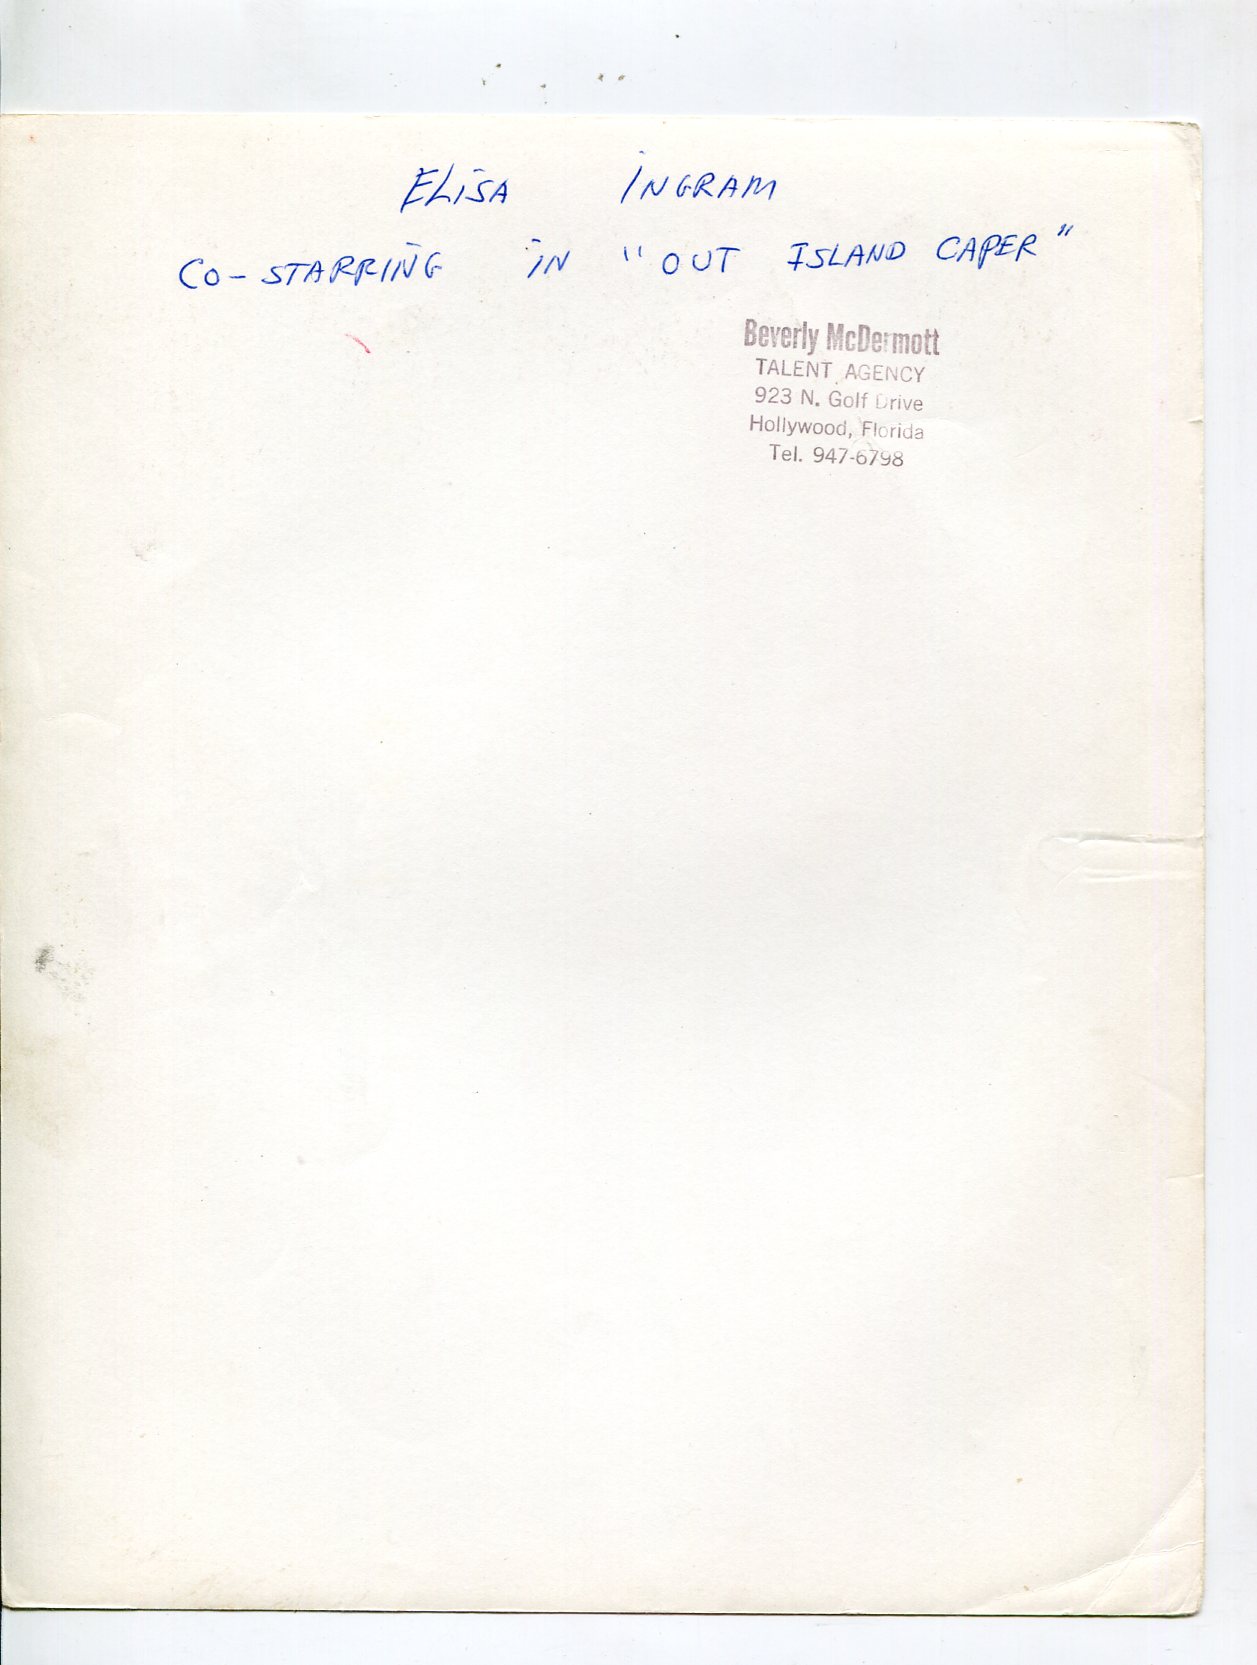 ELiSA iNGRAM
CO-STARRiNG iN "OUT ISLAND CAPER"
Beverly McDermott
TALENT AGENCY
923 N. Golf Drive
Hollywood, Florida
Tel. 947-6798